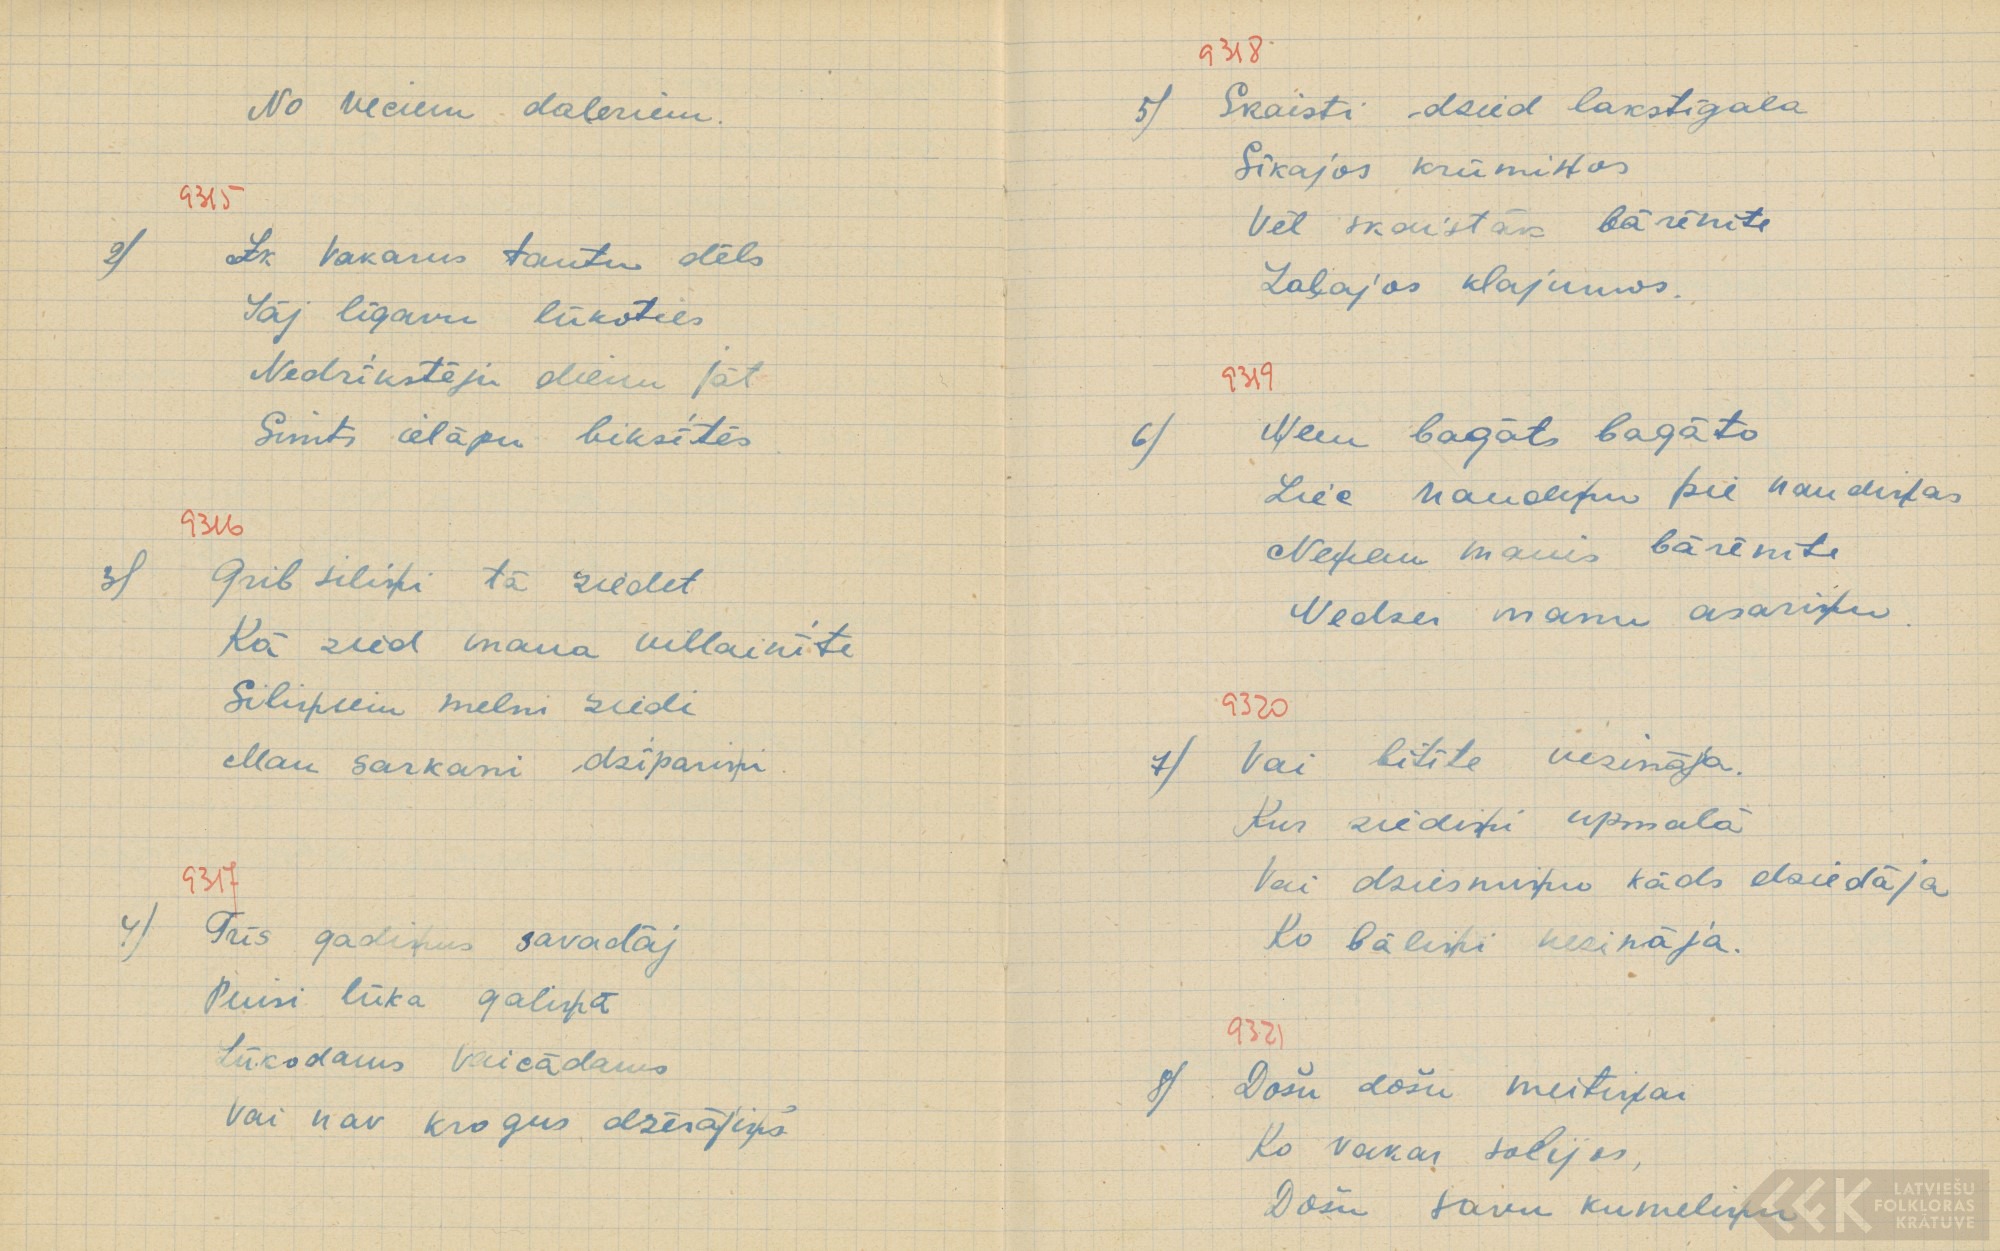 No veciem dāleriem.
9315
2) Ik vakarus tautu dēls
Jāj līgavu lūkoties
Nedrīkstēju dienu jāt
Simts ielāpu biksītēs
9316
3) Grib siliņi tā ziedet
Kā zied mana villainīte
Siliņiem melni ziedi
Man sarkani dzīpariņi.
9317
4) Trīs gadiņus savadāj
Puisi lūka galiņā
Lūkodams vaicādams
Vai nav krogus dzērājiņš
9318
5) Skaisti dzied lakstīgala
Sīkajos krūmiņos
Vēl skaistāk bārēnīte
Laļajos klajumos.
9319
6) Ņem bagāts bagāto
Liec naudiņu pie naudiņas
Neņem manis bārēnīte
Nedzer manu asariņu.
9320
7) Vai bitīte nezināja.
Kur ziediņi upmalā
Vai dziesmiņu kāds dziedāja
Ko bāliņi nezināja.
9321
8) Došu došu meitiņai
Ko vakar solījos,
Došu savu kumeliņu
LATVIEŠU
FOLKLORAS
KRĀTUVE